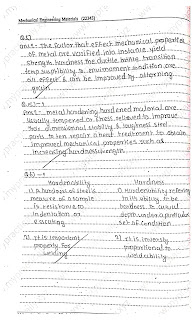 Mechanical Engineering Materials (22343)
Q.5)
ans:- The factor that effect mechanical properties
of metal are verified into instance yield
strength, hardness the ductile brittle transition
temp susceptibility to environment condition are
all effect & can be improved by altering
grain
Ans:- metal hardening hardened material are
usually tempered or stress relieved to improve
dimensional stability & toughness steel
parts to ten require a heat treatment to obtain
improved mechanical properties such as
increasing hardness strength.
Hardenability Hardness
1) A hardness of steel is 1) Hardenability refering
measure of a sample to its ability to be
is resistance to hardness to
indentation or depth under a particular
set of condition
2) It is important 2) It is inversly
property for proportional to
welding weldability